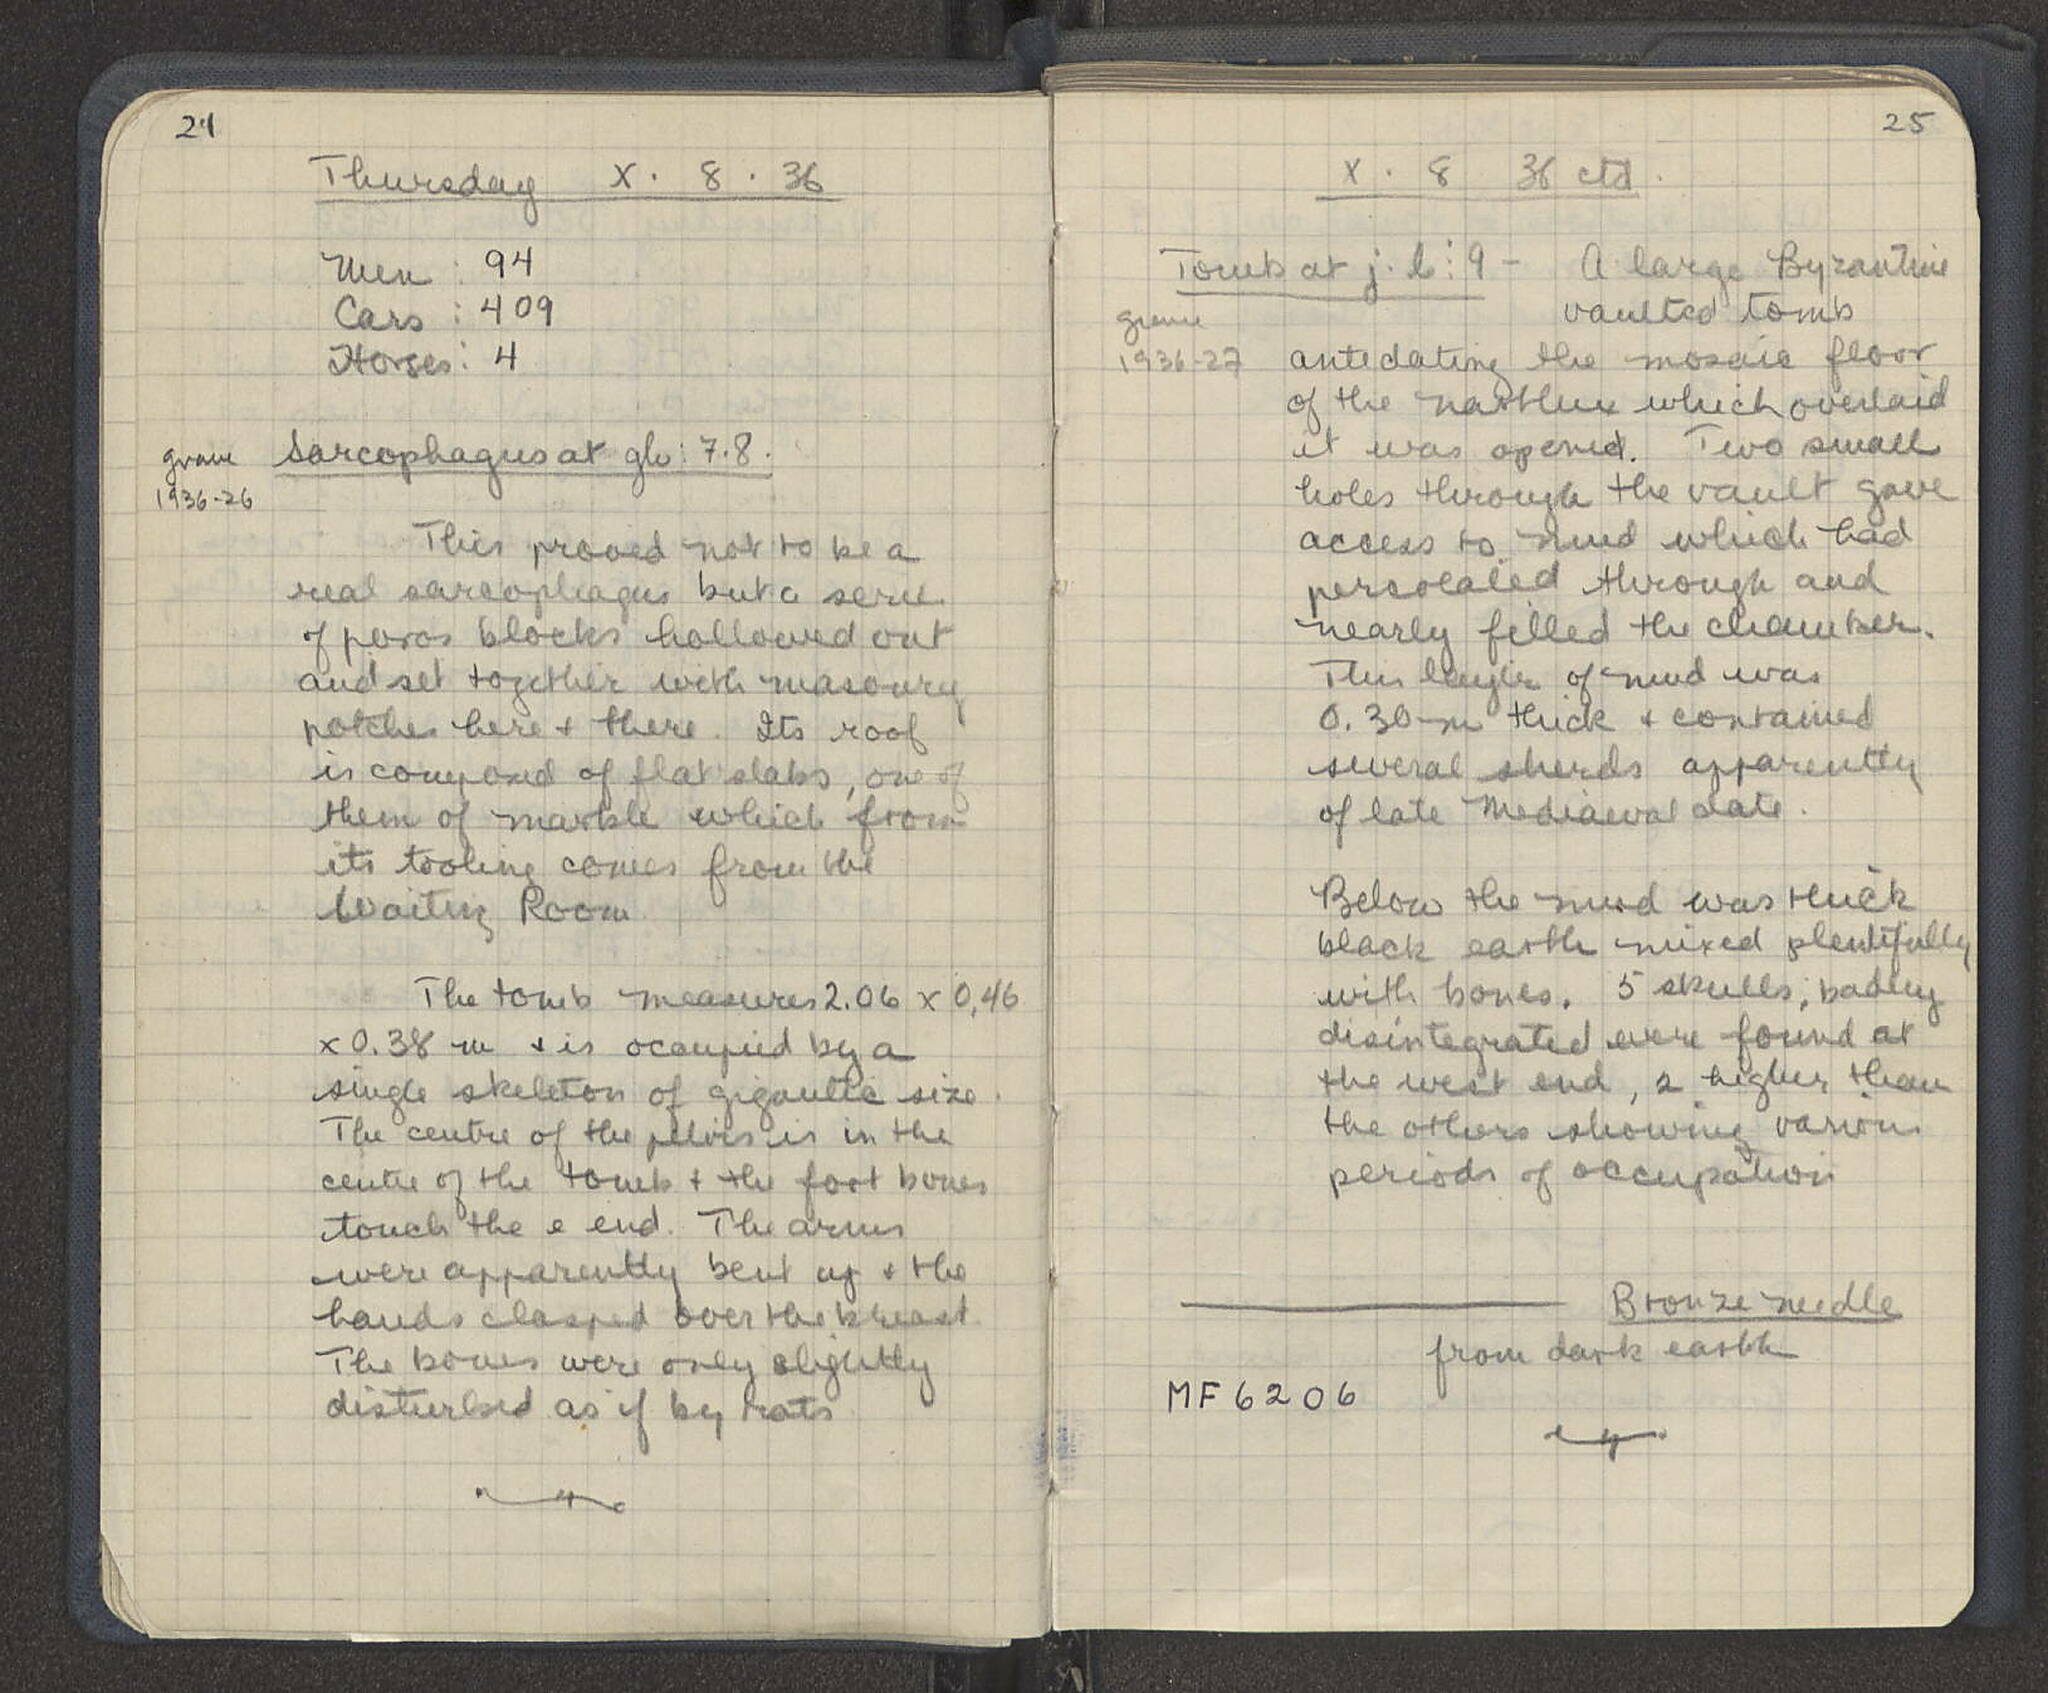 24
Thursday X. 8. 36
Men : 94
Cars : 409
Horses : 4
grave
1936-26
Sarcophagus at gh : 7.8.
This proved not to be a
real sarcophagus but a serie
of poros blocks hollowed out
and set together with masonry
patches here + there. Its roof
is composed of flat slabs, one of
them of marble which from
its tooling comes from the
Waiting Room
The tomb measures 2.06 x 0,46
x 0.38 m + is occupied by a
single skeleton of gigantic size.
The centre of the pelvis is in the
centre of the tomb + the foot bones
touch the e end. The arms
were apparently bent up + the
hands clasped over the breast.
The bones were only slightly
disturbed as if by rats
25
X. 8 36 ctd.
Tomb at j. b : 9 - A large Byzantine
vaulted tomb
grave
1936-27
antedating the mosaic floor
of the narthex which overlaid
it was opened. Two small
holes through the vault gave
access to mud which had
percolated through and
nearly filled the chamber.
This layer of mud was
0.30 m thick + contained
several sherds apparently
of late Mediaeval date.
Below the mud was thick
black earth mixed plentifully
with bones. 5 skulls, badly
disintegrated were found at
the west end, 2 higher than
the others showing various
periods of occupation
Bronze needle
from dark earth
MF 6206